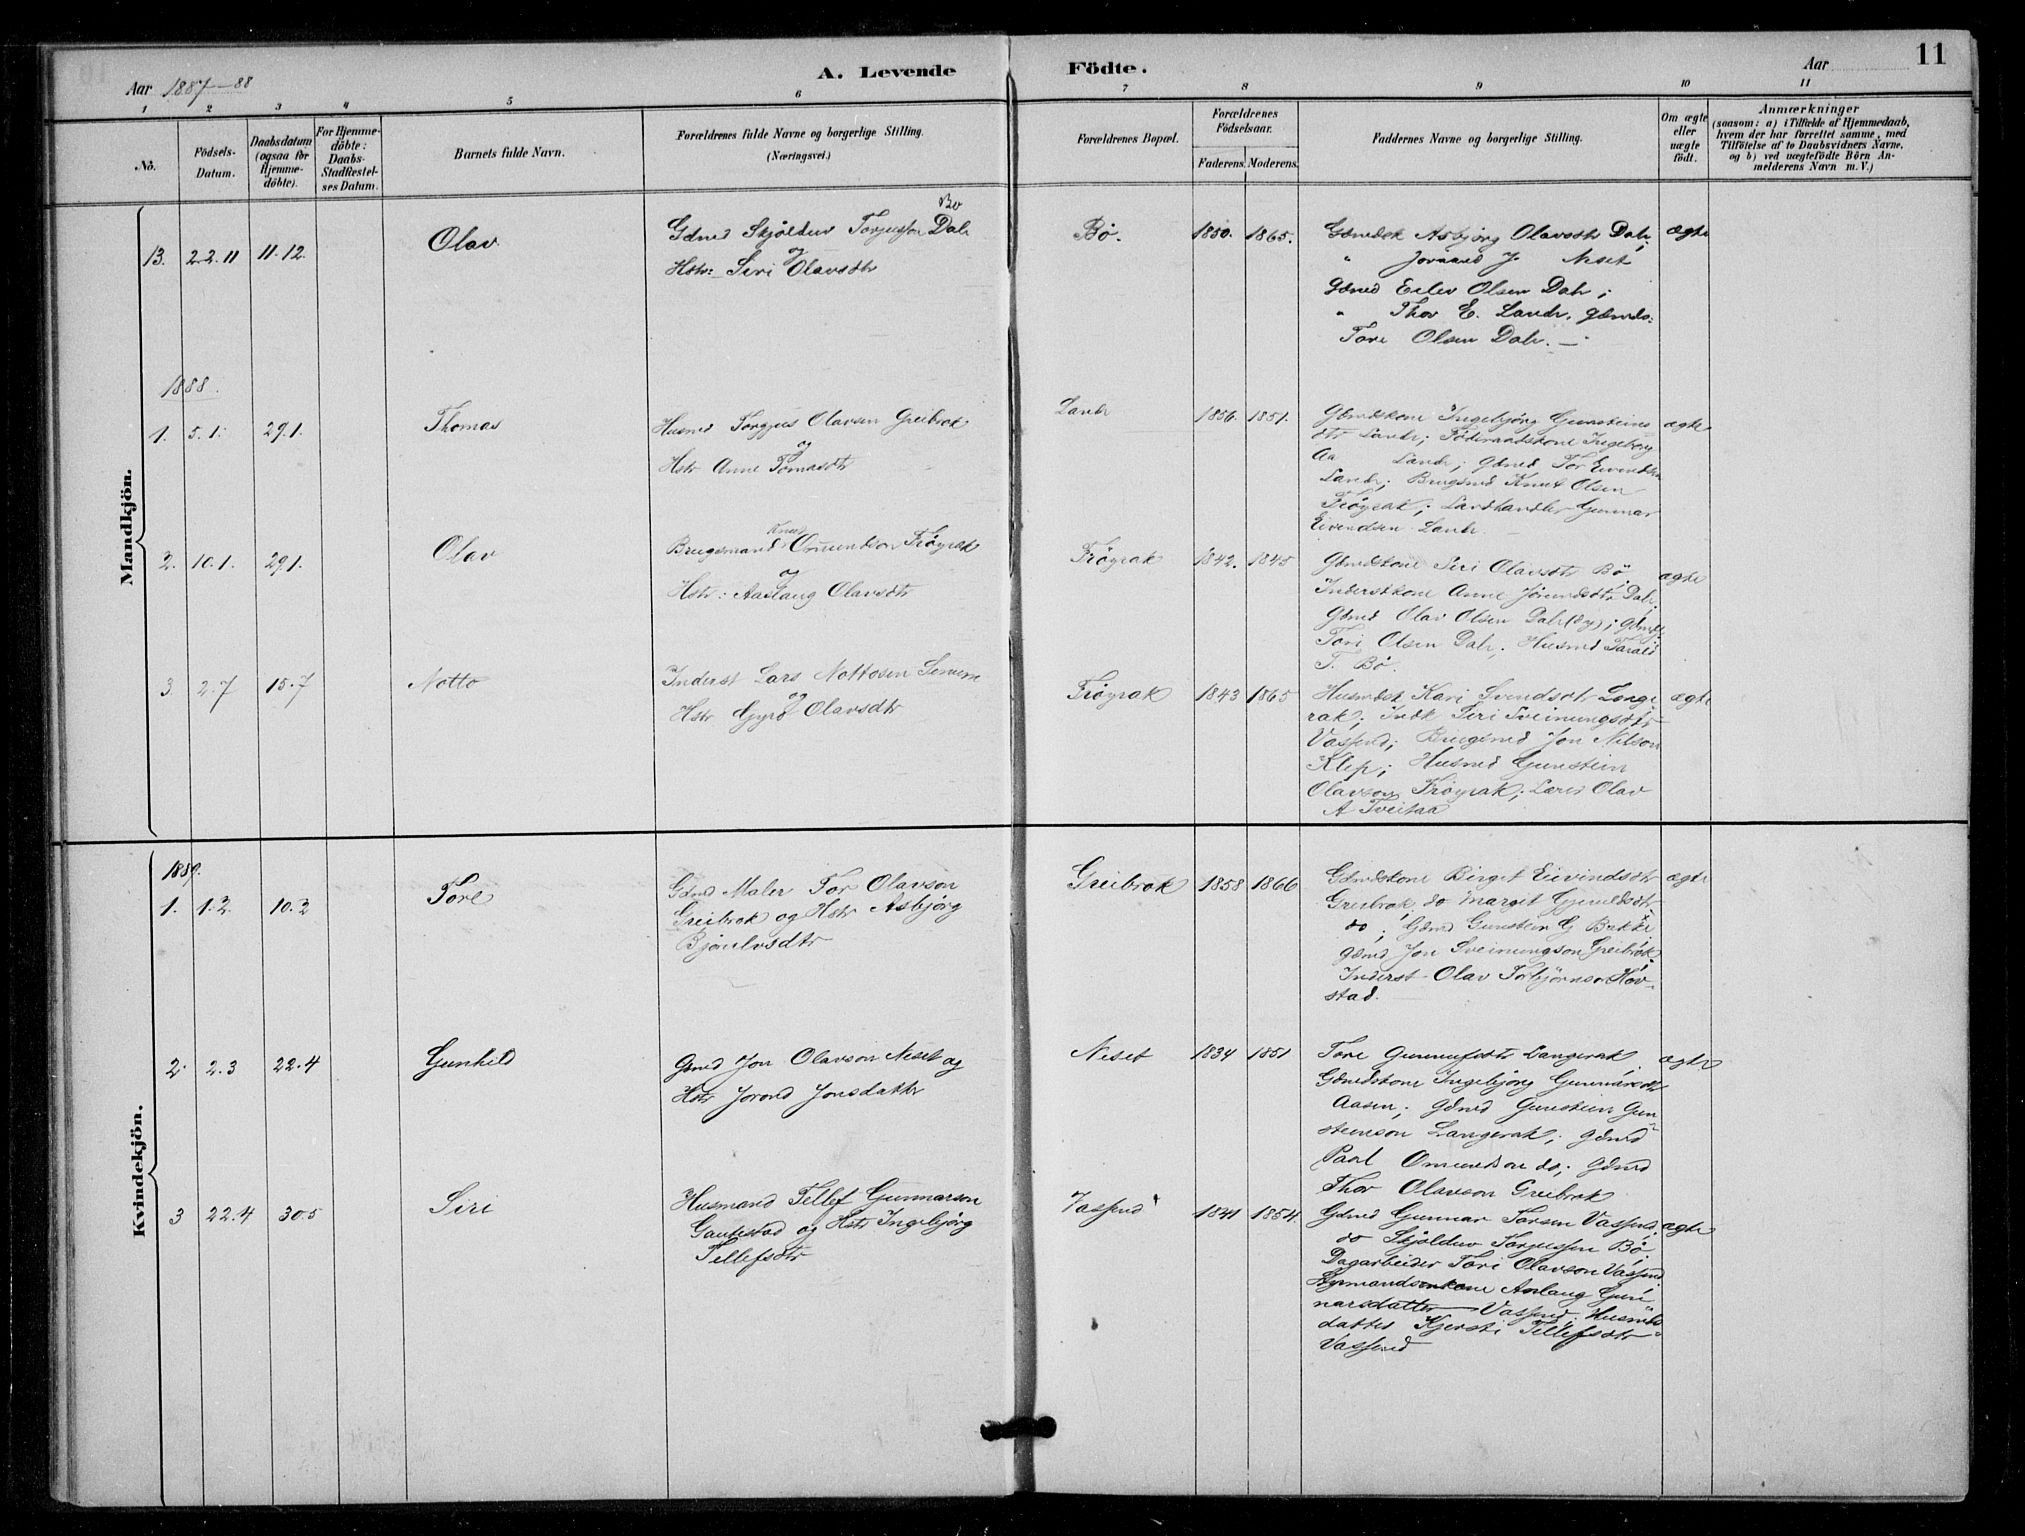 Aar 1887-88
A. Levende
Födte.
Aar
11
1
2
3
4
5
6
7
8
9
10
11
No.
Födsels-Datum.
Daabsdatum (ogsaa for Hjemmedöbte).
For Hjemmedöbte: Daabs-Stadfestelses Datum.
Barnets fulde Navn.
Forældrenes fulde Navne og borgerlige Stilling.
(Næringsvei.)
Forældrenes Bopæl.
Forældrenes Födselsaar.
Faderens. Moderens.
Faddernes Navne og borgerlige Stilling.
Om ægte eller uægte födt.
Anmærkninger
(saasom: a) i Tilfælde af Hjemmedaab,
hvem der har forrettet samme, med
Tilföielse af to Daabsvidners Navne,
og b) ved uægtefödte Börn Anmelderens Navn m.V.)
Mandkjön.
13. 22.11 11.12. Olav
Bø
Gdmd Skjøldu Torjussen Dale
og
Hstr: Siri Olavsdtr
Bø. 1850. 1865.
Gdmdsk Asbjørg Olavsdtr Dale, ægte
" Joraand J. Neset
Gdmd Eilev Olsen Dale;
" Thor E. Lande. gdmds:
Tore Olsen Dale. —
1888.
1. 5.1. 29.1. Thomas
Husmd Torgjus Olavsen Greibrok
og
Hstr Anne Tomasdtr
Lande 1856. 1851.
Gdmdskone Ingebjørg Gunsteins ægte
dtr Lande; Föderaadskone Ingeborg
Aa Lande; gdmd Tor Eivendsen
Lande; Brugsmd Knut Olsen
Frøyrak; Landhandler Gunnar
Eivendsen Lande.
2. 10.1. 29.1. Olav
Knut
Brugsmand Omundson Frøyrak
og
Hstr: Aaslaug Olavsdtr
Frøyrak 1842. 1845
Gdmdskone Siri Olavsdtr Bø ægte
Inderstkone Anne Jørundsdtr Dale
Gdmd Olav Olsen Dale; gdmds.
Tori Olsen Dale; Husmd Tarald
T. Bø.
3. 2.7 15.7 Notto
Inderst Lars Nottosen
og
Hstr Gyro Olavsdtr
Frøyrak 1843 1865
Husmdsk Kari Svendsdtr Lange ægte
rak; Indk Siri Sveinungsdtr
Vassend; Brugsmd Jon Nilson
Klep; Husmd Gunstein
Olavson Frøyrak; Lærer Olav
A Tveitaa
Kvindekjön.
1889.
1. 1.2. 10.2 Tore
Gdmd Maler Tor Olavson
Greibrok og Hstr Asbjörg
Bjönulvsdtr
Greibrok 1858 1866
Gdmdskone Birget Eivindsdtr ægte
Greibrok do Margit Gjeruldsdtr
do; Gdmd Gunstein G Bakke
gdmd Jon Sveinungson Greibrok
Inderst Olav Torbjörnson Hov-
stad.
2. 2.3 22.4 Gunhild
Gdmd Jon Olavson Neset og
Hstr Jorond Jonsdatter
Neset 1834 1851
Tore Gunnufsdtr Langerak. ægte
Gdmdskone Ingebjörg Gunnarsdtr
Aasen; gdmd Gunstein Gun
steinson Langerak; gdmd
Paal Omundson do; gdmd
Thor Olavson Greibrok
3 22.4 30.5 Siri
Husmand Tellef Gunnarson
Gautestad og Hstr Ingebjörg
Tellefsdtr
Vassend 1841 1854.
Gdmd Gunnar Torsen Vassend, ægte
do Skjöldu Torjussen Bö,
Dagarbeider Tori Olavson Vassend
Aslaug Gun
narsdatter Vassend, Husmds
datter Kjersti Tellefsdtr
Vassend